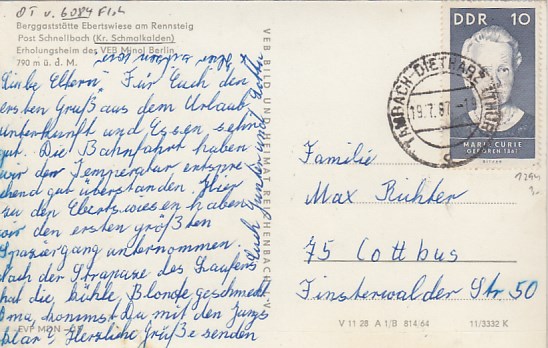 OT v. 6084 Floh
Berggaststätte Ebertswiese am Rennsteig
Post Schnellbach (Kr. Schmalkalden)
Erholungsheim des VEB Minol Berlin
790 m ü. d. M.
Liebe Eltern! Für Euch den
ersten Gruß aus dem Urlaub,
Unterkunft und Essen sehr
gut. Die Bahnfahrt haben
wir den Temperatur entspre-
chend gut überstanden. Hier
zu den Ebertswiesen haben
wir den ersten größten
Spaziergang unternommen.
Nach der Strapaze des Laufens
hat die kühle Blonde geschmeckt
Oma, kommst du mit den Jungs
klar? Herzliche Grüße senden
Euch Günter und
EVP MDN
VEB BILD UND HEIMAT REICHENBACH
DDR 10
MARIE CURIE
GEBOREN 1867
TAMBACH-DIETHARZ (THÜR)
19.7.67
Familie
Max Richter
75 Cottbus
Finsterwalder Str. 50
V 11 28 A 1/B 814/64
11/3332 K